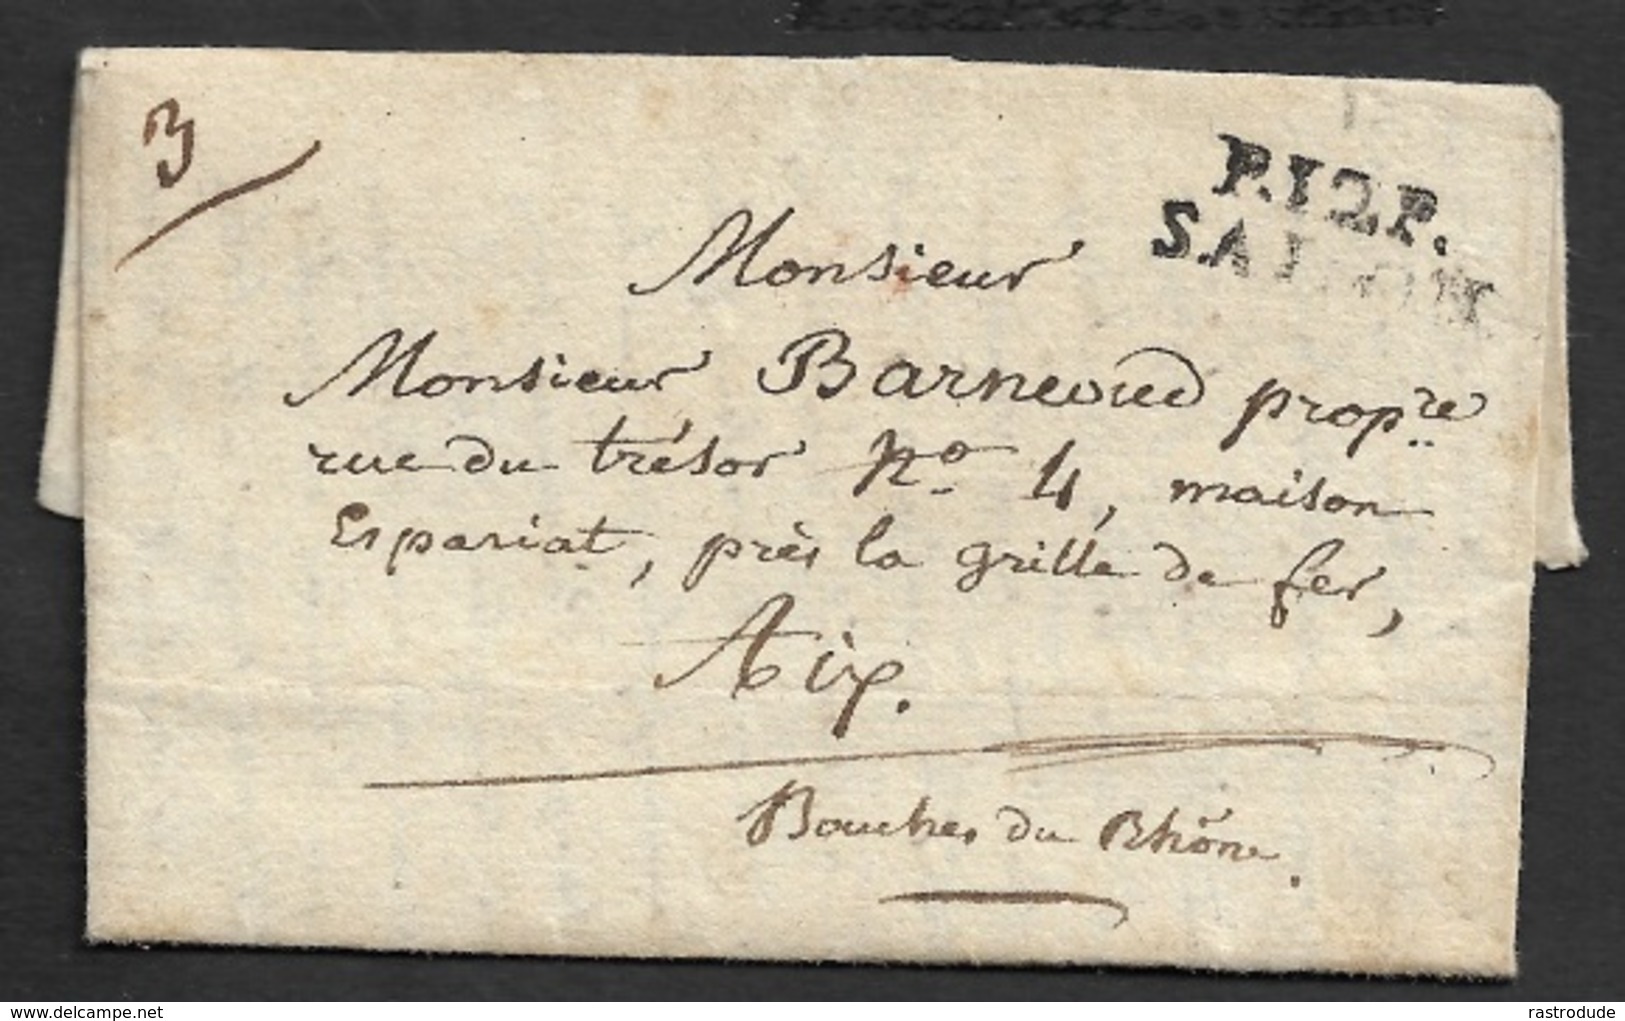 3
P.12.P.
SALON
Monsieur
Monsieur Barneoud prop.re
rue du trésor n.o 4, maison
Espariat, près la grille de fer,
Aix.
Bouches du Rhône.
www.delcampe.net
rastrodude